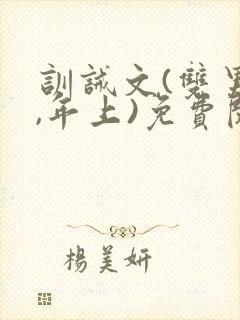 訓誡文(雙男
,年上)免費閱
楊美妍